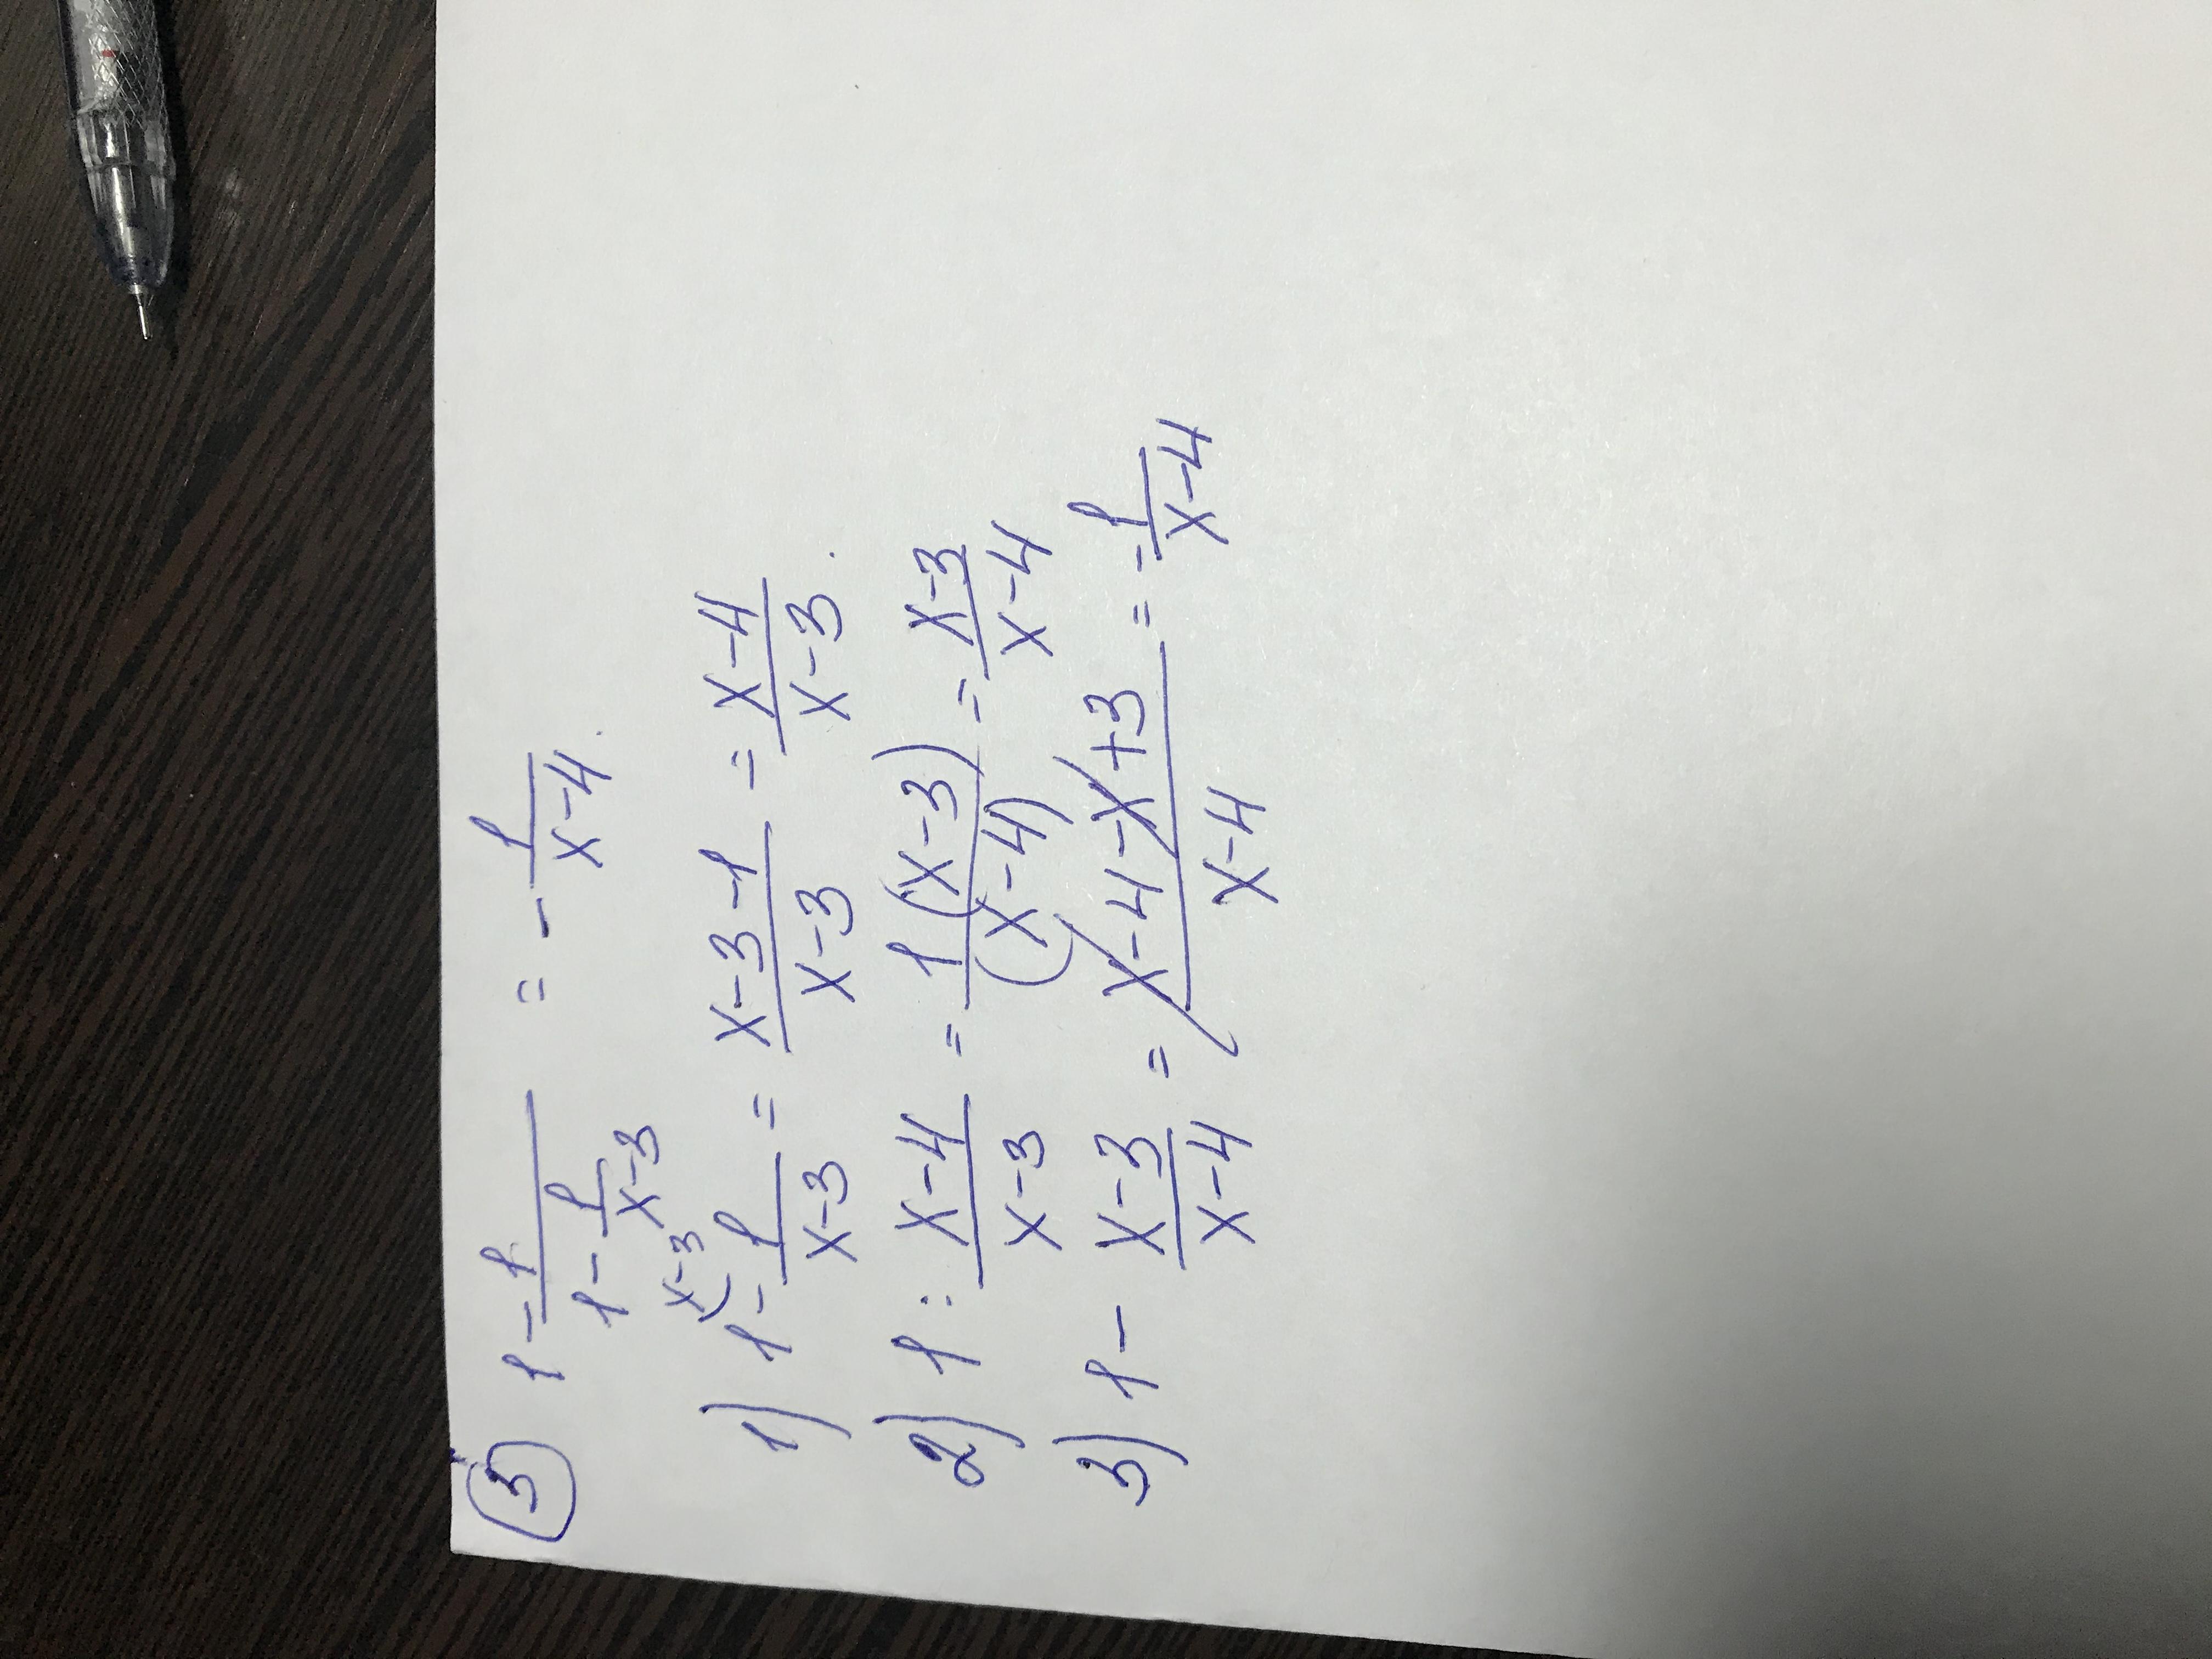 ③ 1 - \frac{1}{1 - \frac{1}{x-3}} = -\frac{1}{x-4}.
1) 1^{(x-3} - \frac{1}{x-3} = \frac{x-3-1}{x-3} = \frac{x-4}{x-3}.
2) 1 : \frac{x-4}{x-3} = \frac{1(x-3)}{(x-4)} = \frac{x-3}{x-4}
3) 1 - \frac{x-3}{x-4} = \frac{x-4-x+3}{x-4} = -\frac{1}{x-4}